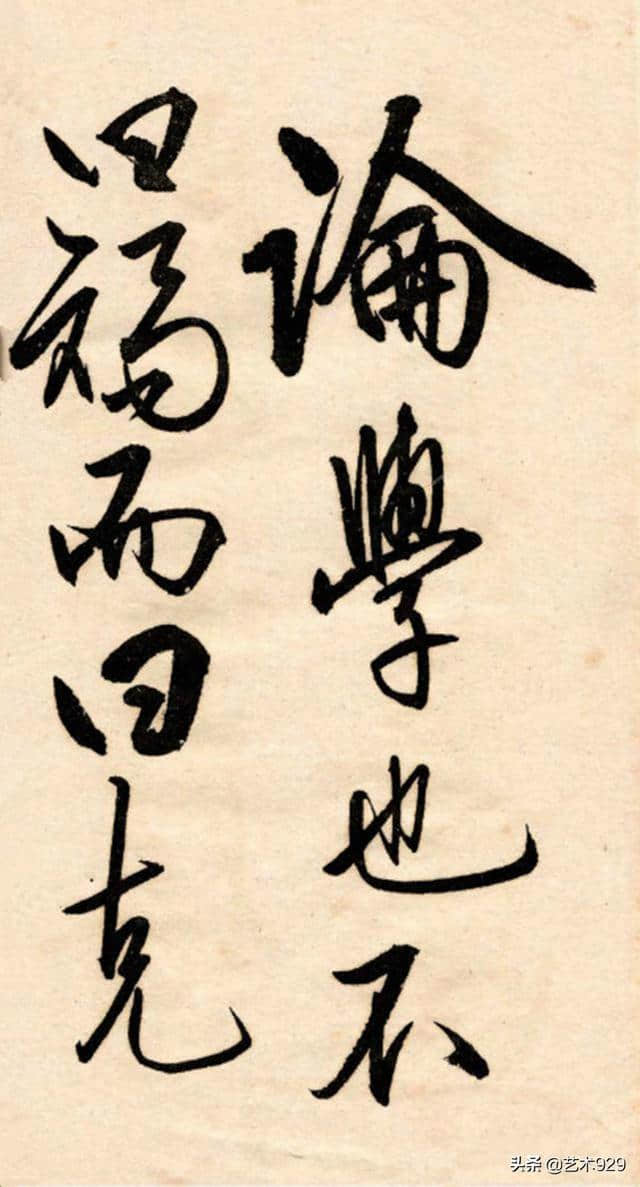 論學也不
曰矯而曰克
头条 @艺术929